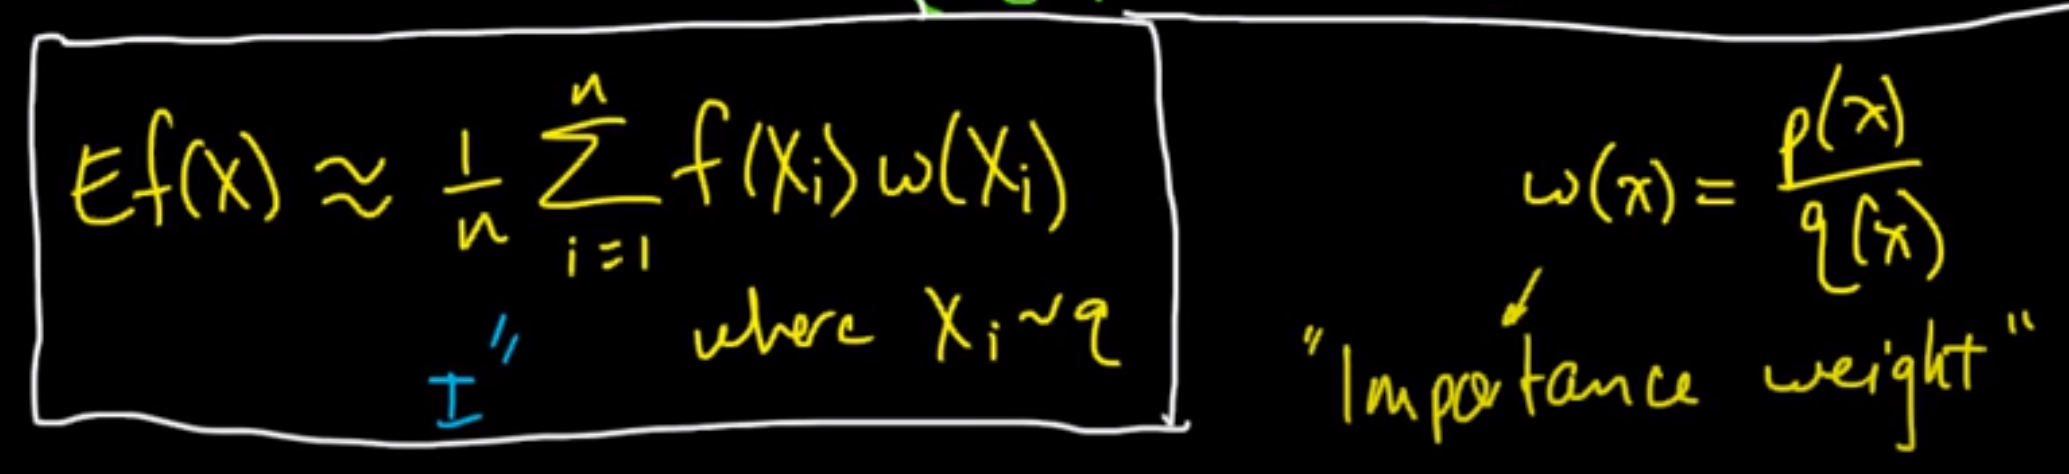 Ef(X) ≈ 1/n ∑_{i=1}^{n} f(X_i) w(X_i)
where X_i ~ q
" I
w(x) = p(x)/q(x)
"Importance weight"